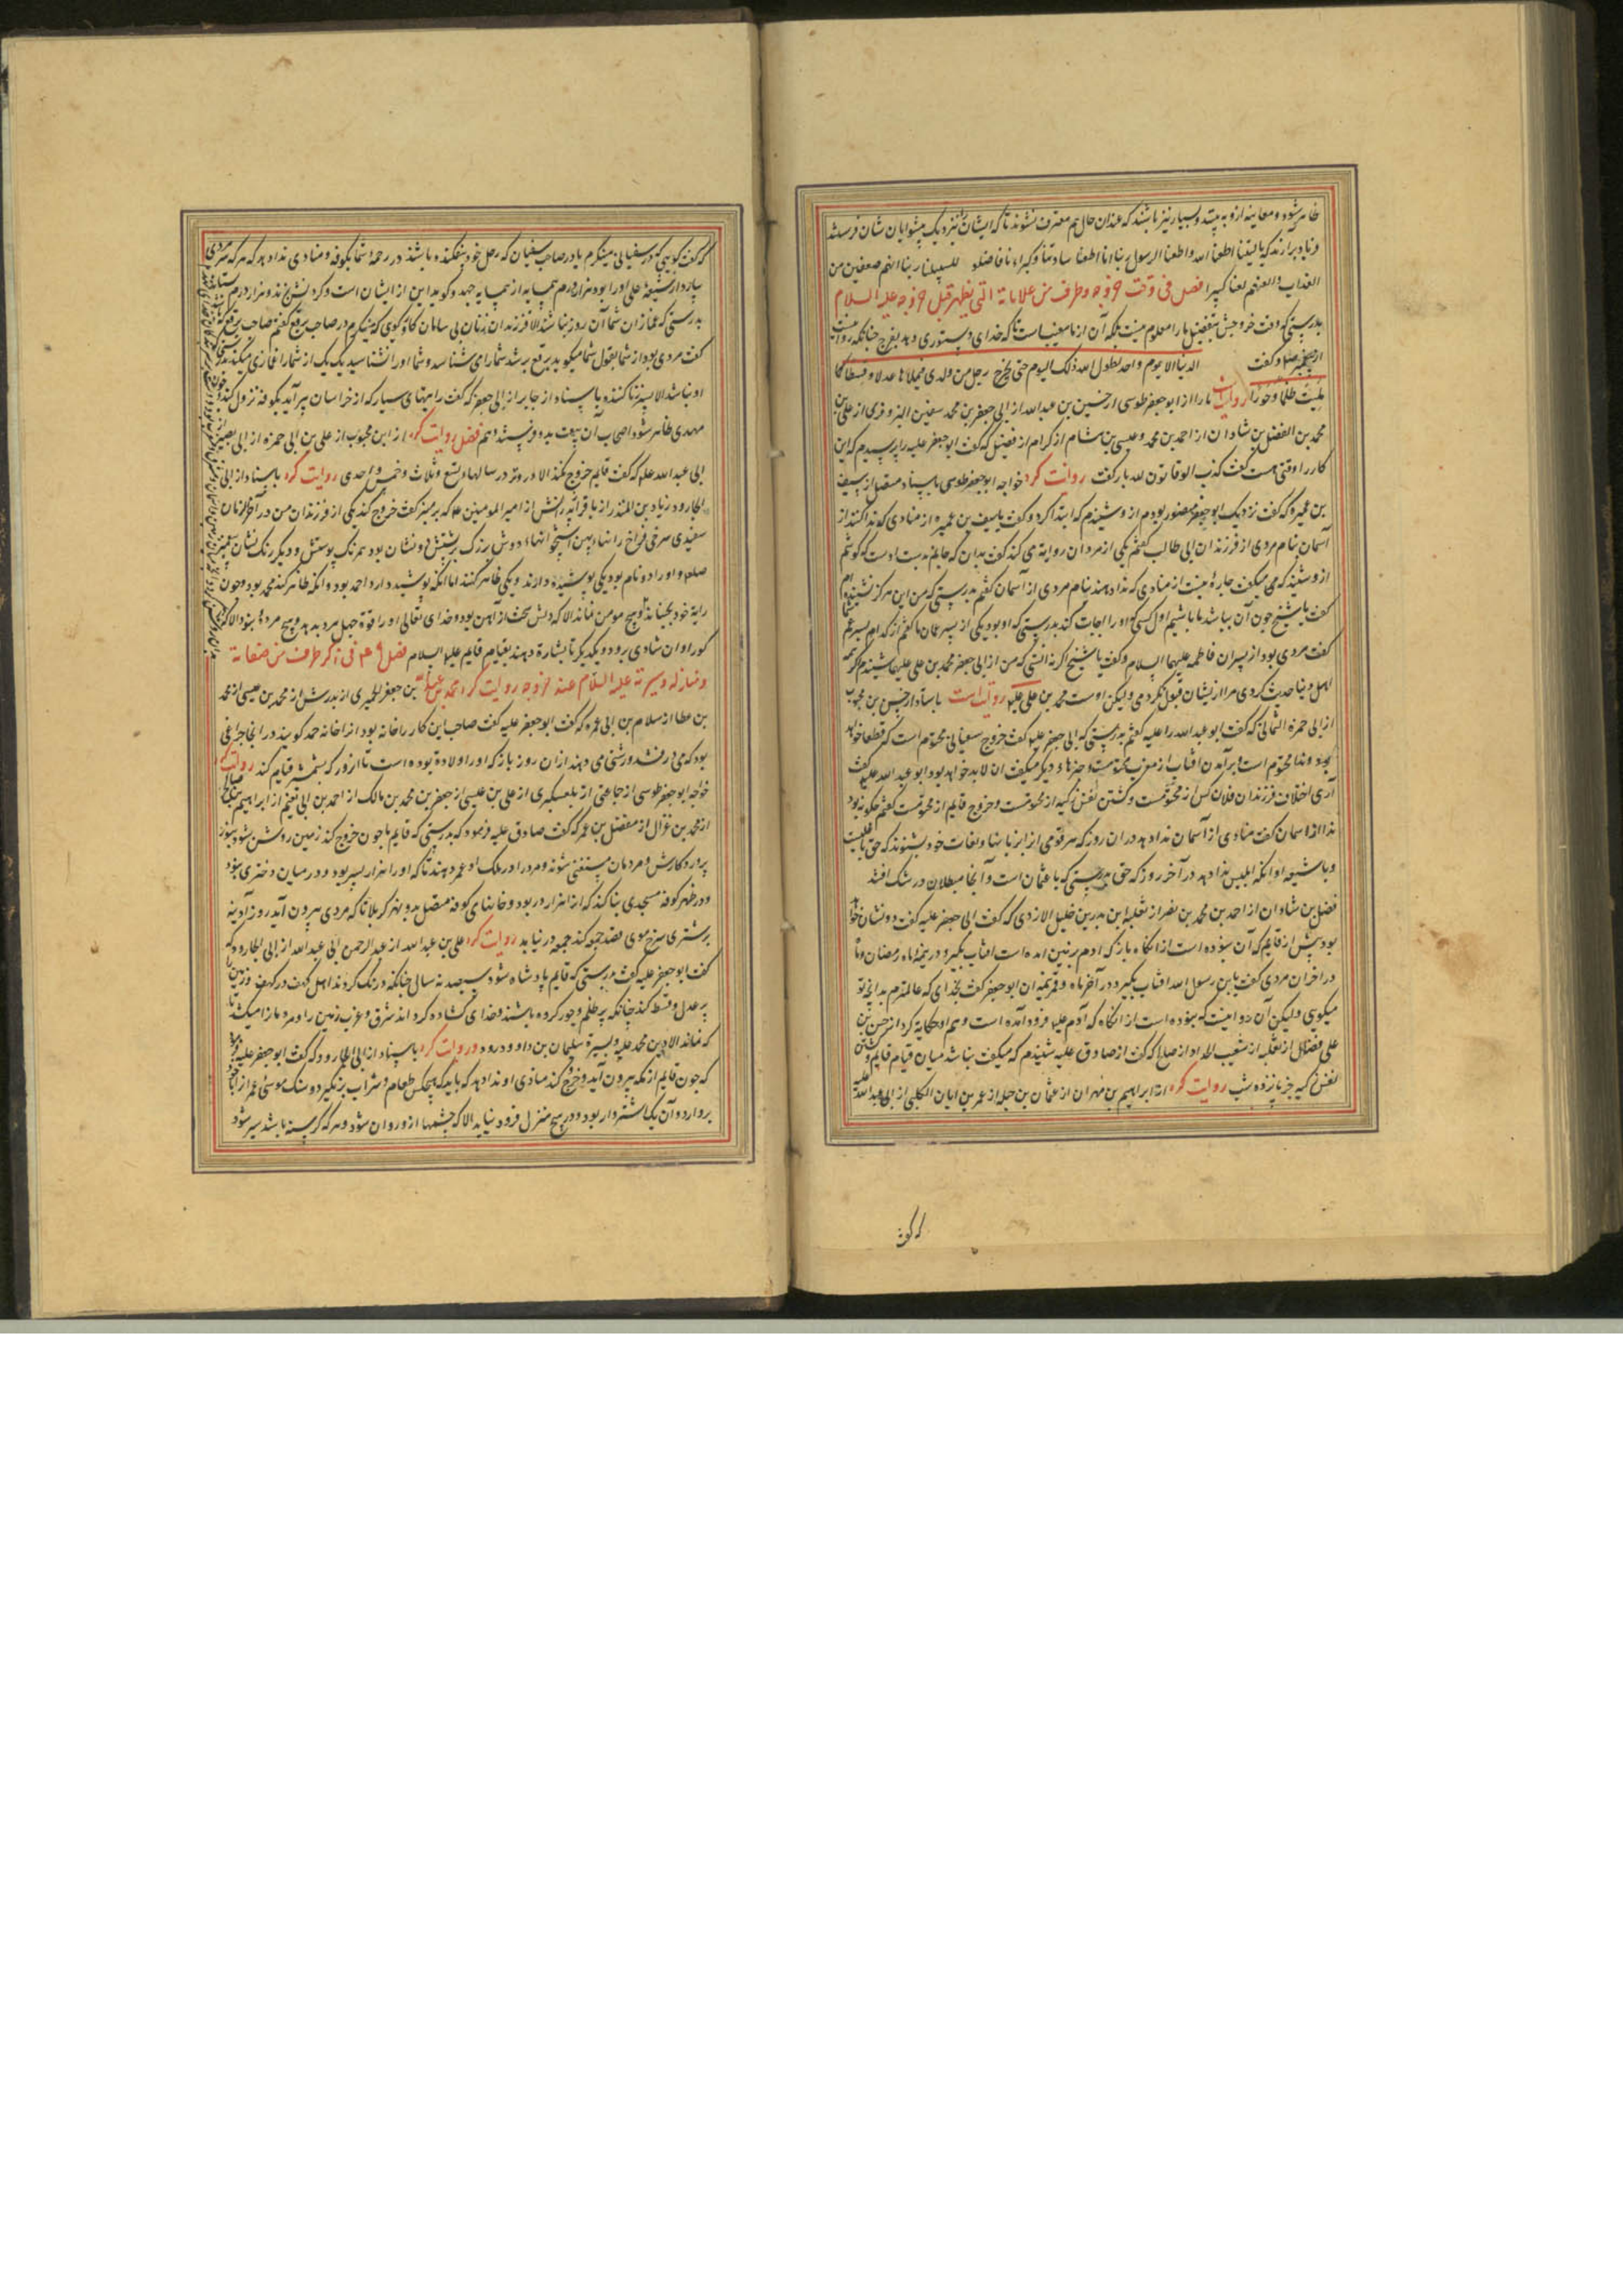 ظاهر شود و معاینه ازو به بینند و بسیار نیز باشند که عندان حال هم معترف نشوند تا که ایشان را نیز نزدیک پیشوایان شان فرستند
و فریاد برآرند که یا لیتنا اطعنا الله و اطعنا الرسول ربنا انا اطعنا سادتنا و کبراءنا فاضلونا السبیلا ربنا اتهم ضعفین من
العذاب و العنهم لعنا کبیرا فصل فی وقت خروجه و طرف من علاماته التی یظهر قبل خروجه علیه السلام
بدرستی که وقت خروجش بتفصیل ما را معلوم نیست بلکه آن از ما مغیب است تا که خدای دستوری دهد بفرج چنانکه روایت
از پیغمبر صلعم و گفت الدنیا الا یوم واحد لطول الله ذلک الیوم حتی یخرج رجل من ولدی فیملاها عدلا و قسطا کما
ملیت ظلما و جورا روایت ما را از ابو جعفر طوسی از حسین بن عبدالله از ابی جعفر بن محمد سفین البزوفری از علی بن
محمد بن الفضل بن شاذان از احمد بن محمد و عیسی بن هشام از کرام از فضیل که گفت ابو جعفر علیه را پرسیدم که این
کار را وقتی هست گفت کذب الوقاتون سه بار گفت روایت کرد خواجه ابو جعفر طوسی باسناد متصل از سیف
بن عمیره که گفت نزدیک ابو جعفر منصور بودم ازو شنیدم که ابتدا کرد و گفت یا سیف بن عمیره از منادی که ندا کند از
آسمان بنام مردی از فرزندان ابی طالب گفتم یکی از مردمان روایت می کند گفت بدان که جانم بدست اوست که گوشم
ازو شنید که می میگفت چاره نیست از منادی که ندا دهند بنام مردی از آسمان گفتم بدرستی که من این هرگز نشنیده ام
گفت یا شیخ چون آن بباشد ما باشیم اول کسی که او را اجابت کند بدرستی که او بود یکی از پسر عمان ما گفتم از کدام پسر عم شما
گفت مردی بود از پسران فاطمه علیها السلام و گفت یا شیخ اگر نه انستی که من از ابی جعفر محمد بن علی علیهما شنیدم گر همه
اهل دنیا حدیث کردی مرا از یشان قبول نکردمی ولیکن اوست محمد بن علی علیه روایت است باسناد از حسن بن محبوب
از ابی حمزه الثمالی که گفت ابو عبدالله را علیه گفتم بدرستی که ابی جعفر علیه گفت خروج سفیانی محتوم است که قطعا خواهد
بود و ندا محتوم است و برآمدن افتاب از مغرب محتومست و چیزهاء دیگر میگفت ان لابد خواهد بود ابو عبدالله علیه گفت
آری اختلاف فرزندان فلان کس از محتومست و کشتن نفس زکیه از محتومست و خروج قایم از محتومست گفتم چگونه بود
ندا از آسمان گفت منادی از آسمان ندا دهد در ان روز که هر قومی از ابز بانها و لغات خود بشنوند که حق با علیست
و با شیعه او انکه ابلیس ندا دهد در آخر روز که حق بدرستی که با عثمان است و آنجا مبطلان در شک افتند
فضل بن شاذان از احمد بن محمد بن نصر از ثعلبه ابن بدر بن خلیل الازدی که گفت ابی جعفر علیه گفت دو نشان خواهد
بود پیش از قایم که آن نبوده است از انگاه باز که ادم بزمین امده است افتاب بگیرد در نیمه ماه رمضان و ماه
در اخر ان مردی گفت یا بن رسول الله افتاب بگیرد در آخر ماه و قمر نیمه ان ابو جعفر گفت بخدای که عالمترم بدانچه تو
میگویی ولیکن آن دو ایتست که نبوده است از انگاه که آدم علیه فرود آمده است و هم او حکایة کرد از حسن بن
علی فضال از ثعلبه از شعیب الحداد از صالح که گفت از صادق علیه شنیدم که میگفت نباشد میان قیام قایم و کشتن
نفس زکیه جز پانزده شب روایت کرد از ابراهیم بن مهران از عثمان بن جبله از عمر بن ابان الکلبی از ابی عبدالله علیه
که گفت
که گفت گویی که در سفیانی مینگرم یا در صاحب سفیان که رحل خود بیفکنده باشد در رحبه شما بکوفه و منادی ندا دهد که هر که سر مردی
بیارد از شیعه علی او را بود هزار درم همسایه از همسایه جهد و گوید این از ایشان است و گردنش بزند و هزار درم بستاند
بدرستی که غمازان شما آن روز نباشند الا فرزندان زنان بی سامان کار گویی که مینگرم در صاحب برقع گفتم صاحب برقع که باشد
گفت مردی بود از شما بقول شما میگوید برقع پوشد شما را می شناسد و شما او را نشناسید یک یک از شما را غمازی میکند بدرستی که
او نباشد الا پسر زنا کننده باسناد از جابر از ابی جعفر که گفت رایتهای سیاه که از خراسان برآید بکوفه نزول کند و چون
مهدی ظاهر شود اصحاب ان بیعت بدو فرستند و هم فضل روایت کرد از ابن محبوب از علی بن ابی حمزه از ابی بصیر از
ابی عبدالله علیه که گفت قایم خروج نکند الا در وتر در سالها و تسع و ثلاث و خمس و احدی روایت کرد باسناد از ابی
الجارود زیاد بن المنذر از باقر از پدرانش از امیر المومنین ع که بر منبر گفت خروج کند یکی از فرزندان من در آخر الزمان
سفیدی سرخی فراخ رانها، پهن استخوانها، دوش بزرگ بر پشتش دو نشان بود همرنگ پوستش و دیگر رنگ نشان پیغمبر
صلعم و او را دو نام بود یکی پوشیده دارند و یکی ظاهر کنند اما انکه پوشیده دارد احمد بود و انکه ظاهر کند محمد بود و چون
رایة خود بجنباند هیچ مومن نماند الا که دلش سخت تر از آهن بود و خدای تعالی او را قوة چهل مرد بدهد و هیچ مرده نبود الا که در
گور او ان شادی برود و یکدیگر را بشارة دهند بقیام قایم علیه السلام فصل فی ذکر طرف من صفاته
و منازله و سیرته علیه السلام عند خروجه روایت کرد محمد بن عبدالله بن جعفر الحمیری از پدرش از محمد بن عیسی از محمد
بن عطا از سلام بن ابی عمره که گفت ابو جعفر علیه گفت صاحب این کار را خانه بود انرا خانه حمد گویند در انجا چراغی
بود که می درفشد و رشنی می دهد از ان روز باز که او را ولادة بوده است تا انروز که بشمشیر قیام کند روایت کرد
خواجه ابو جعفر طوسی از جماعتی از تلعکبری از علی بن حبشی از جعفر بن محمد بن مالک از احمد بن ابی نعیم از ابراهیم بن صالح
از محمد بن غزال از مفضل بن عمر که گفت صادق علیه فرمود که بدرستی که قایم ما چون خروج کند زمین روشن شود بنور
پروردکارش و مردمان مستغنی شوند و مرد را در ملک او عمر دهند تا که او را هزار پسر بود و در میان دختری نبود
و در ظهر کوفه مسجدی بنا کند که انرا هزار در بود و خانهای کوفه متصل بدو نهر کربلا تا که مردی بیرون آید روز آدینه
بر شتری سرخ موی قصد جمعه کند جمعه در نیابد روایت کرد علی بن عبدالله از عبدالرحمن ابی عبدالله از ابی الجارود که
گفت ابو جعفر علیه گفت بدرستی که قایم پادشاه شود سیصد نه سال چنانکه درنگ کردند اهل کهف در کهف و زمین را
پر عدل و قسط کند چنانکه پر ظلم و جور کرده باشند و خدای گشاده گرداند شرق و غرب زمین را و مردمان را میکشد تا
که نماند الا دین محمد علیه و بسیرة سلیمان بن داوود رود و روایت کرد باسناد از ابی الجارود که گفت ابو جعفر علیه
که چون قایم از مکه بیرون آید و خروج کند منادی او ندا دهد که باید که هیچکس طعام و شراب برنگیرد و سنگ موسی عمران با خود
بردارد و آن یک اشتروار بود و در هیچ منزل فرود نیاید الا که چشمها ازو روان شود و هر که گرسنه باشد سیر شود